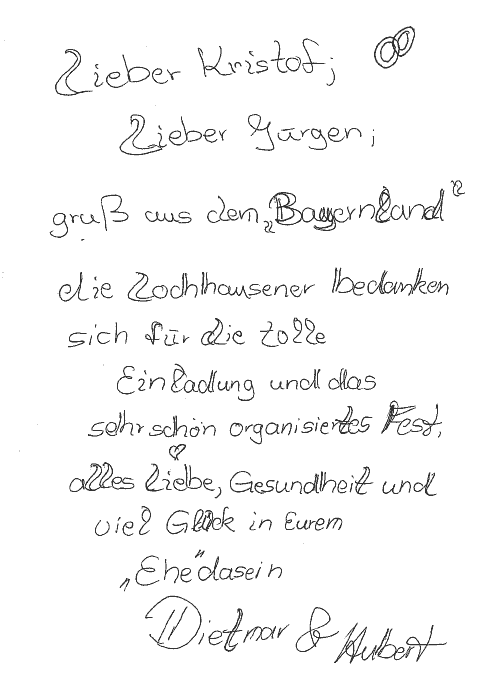 Lieber Kristof;
Lieber Jürgen;
gruß aus dem „Bayernland"
die Lochhausener bedanken
sich für die tolle
Einladung und das
sehr schön organisiertes Fest,
alles Liebe, Gesundheit und
viel Glück in Eurem
„Ehe"dasein
Dietmar & Hubert